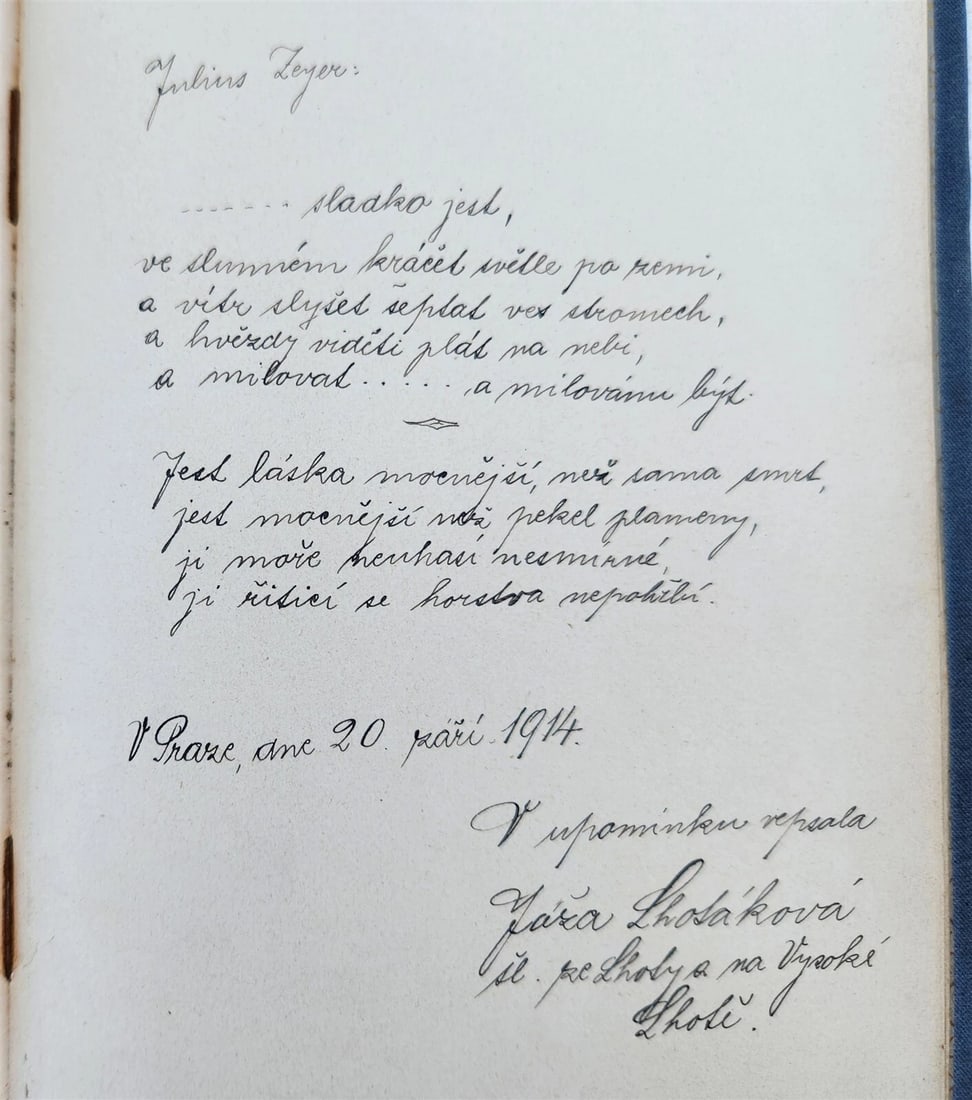 Julius Zeyer:
------- sladko jest,
ve slunném kráčet světle po zemi,
a vítr slyšet šeptat ves stromech,
a hvězdy viděti plát na nebi,
a milovat..... a milovánu být.
Jest láska mocnější, než sama smrt,
jest mocnější než pekel plameny,
ji moře neuhasí nesmírné,
ji řítící se horstva nepohřbí.
V Praze, dne 20. září 1914.
V upomínku vepsala
Jóža Lhotáková
šl. ze Lhoty a na Vysoké
Lhotě.